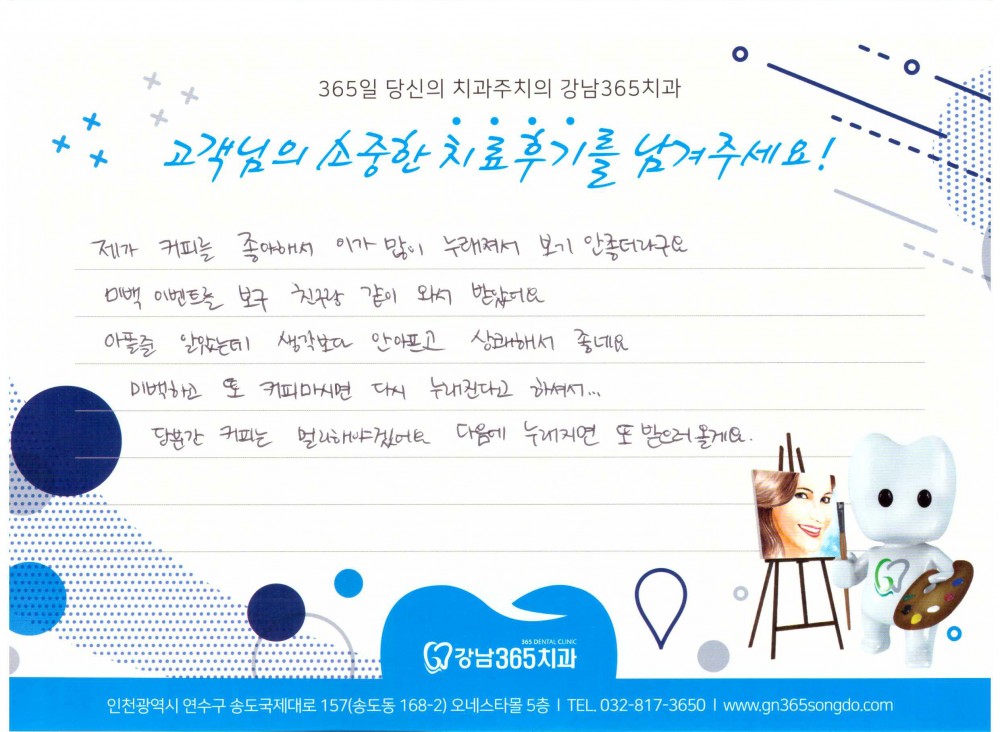 365일 당신의 치과주치의 강남365치과
고객님의 소중한 치료후기를 남겨주세요!
제가 커피를 좋아해서 이가 많이 누래져서 보기 안좋더라구요
미백 이벤트를 보구 친구랑 같이 와서 받았어요
아플줄 알았는데 생각보다 안아프고 상쾌해서 좋네요
미백하고 또 커피마시면 다시 누래진다고 하셔서...
당분간 커피는 멀리해야겠어요 다음에 누래지면 또 받으러 올게요.
365 DENTAL CLINIC
강남365치과
인천광역시 연수구 송도국제대로 157(송도동 168-2) 오네스타몰 5층 l TEL. 032-817-3650 l www.gn365songdo.com